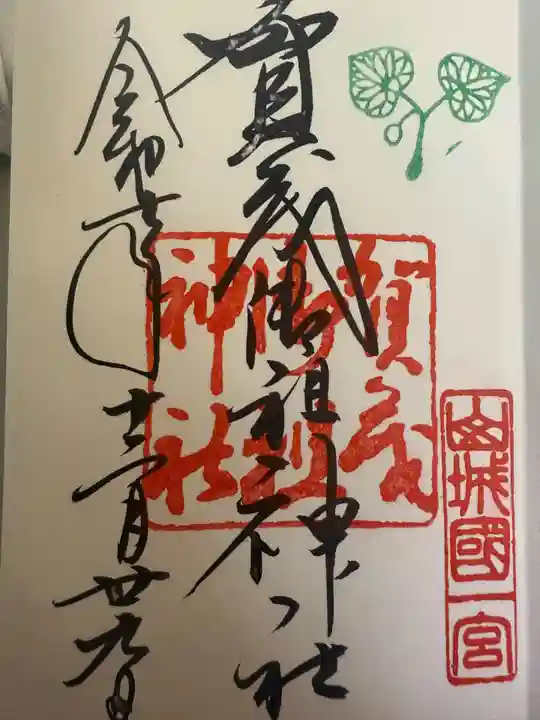 山城國一宮
賀茂御祖神社
賀茂
御祖
神社
令和 年十二月廿九日